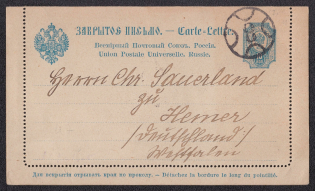 ЗАКРЫТОЕ ПИСЬМО. — Carte-Lettre.
Всемірный Почтовый Союзъ. Россія.
Union Postale Universelle. Russie.
Herrn Chr. Sauerland
zu
Hemer
/Deutschland/
Westfalen
Для вскрытія отрывать край по проколу. — Détachez la bordure le long du pointillé.